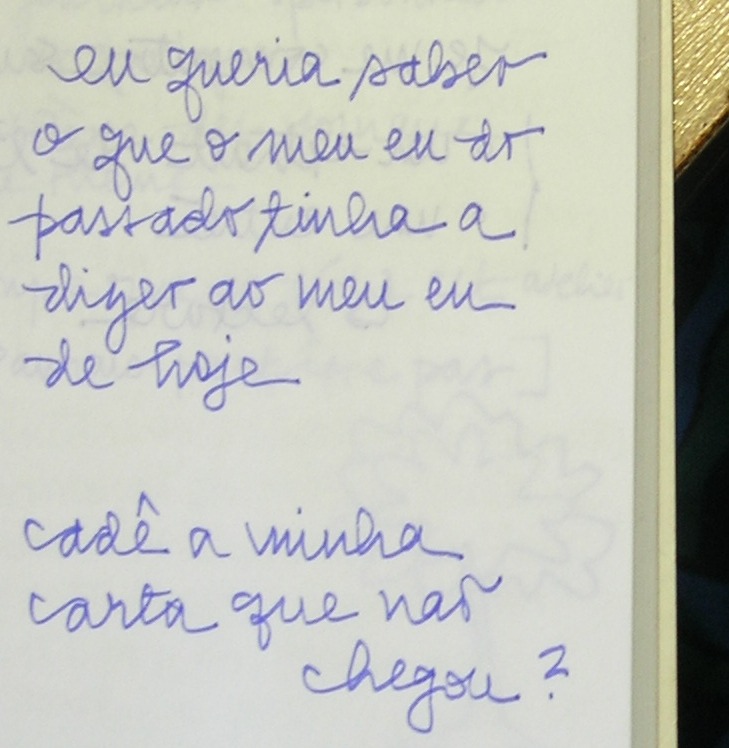 eu queria saber
o que o meu eu do
passado tinha a
dizer ao meu eu
de hoje
cadê a minha
carta que não
chegou?